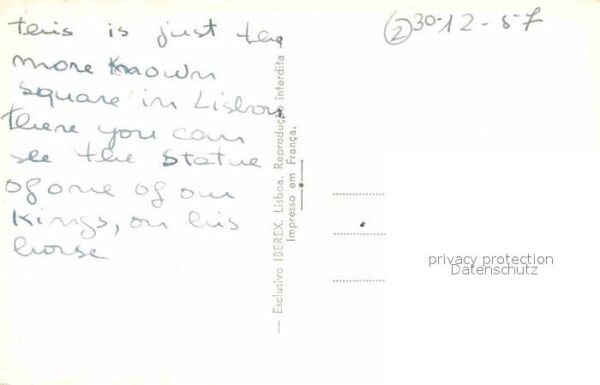 this is just the
more known
square in Lisbon
there you can
see the statue
of one of our
kings, on his
horse
(2) 30-12-57
— Exclusivo IBEREX. Lisboa. Reprodução interdita
Impresso em França.
privacy protection
Datenschutz